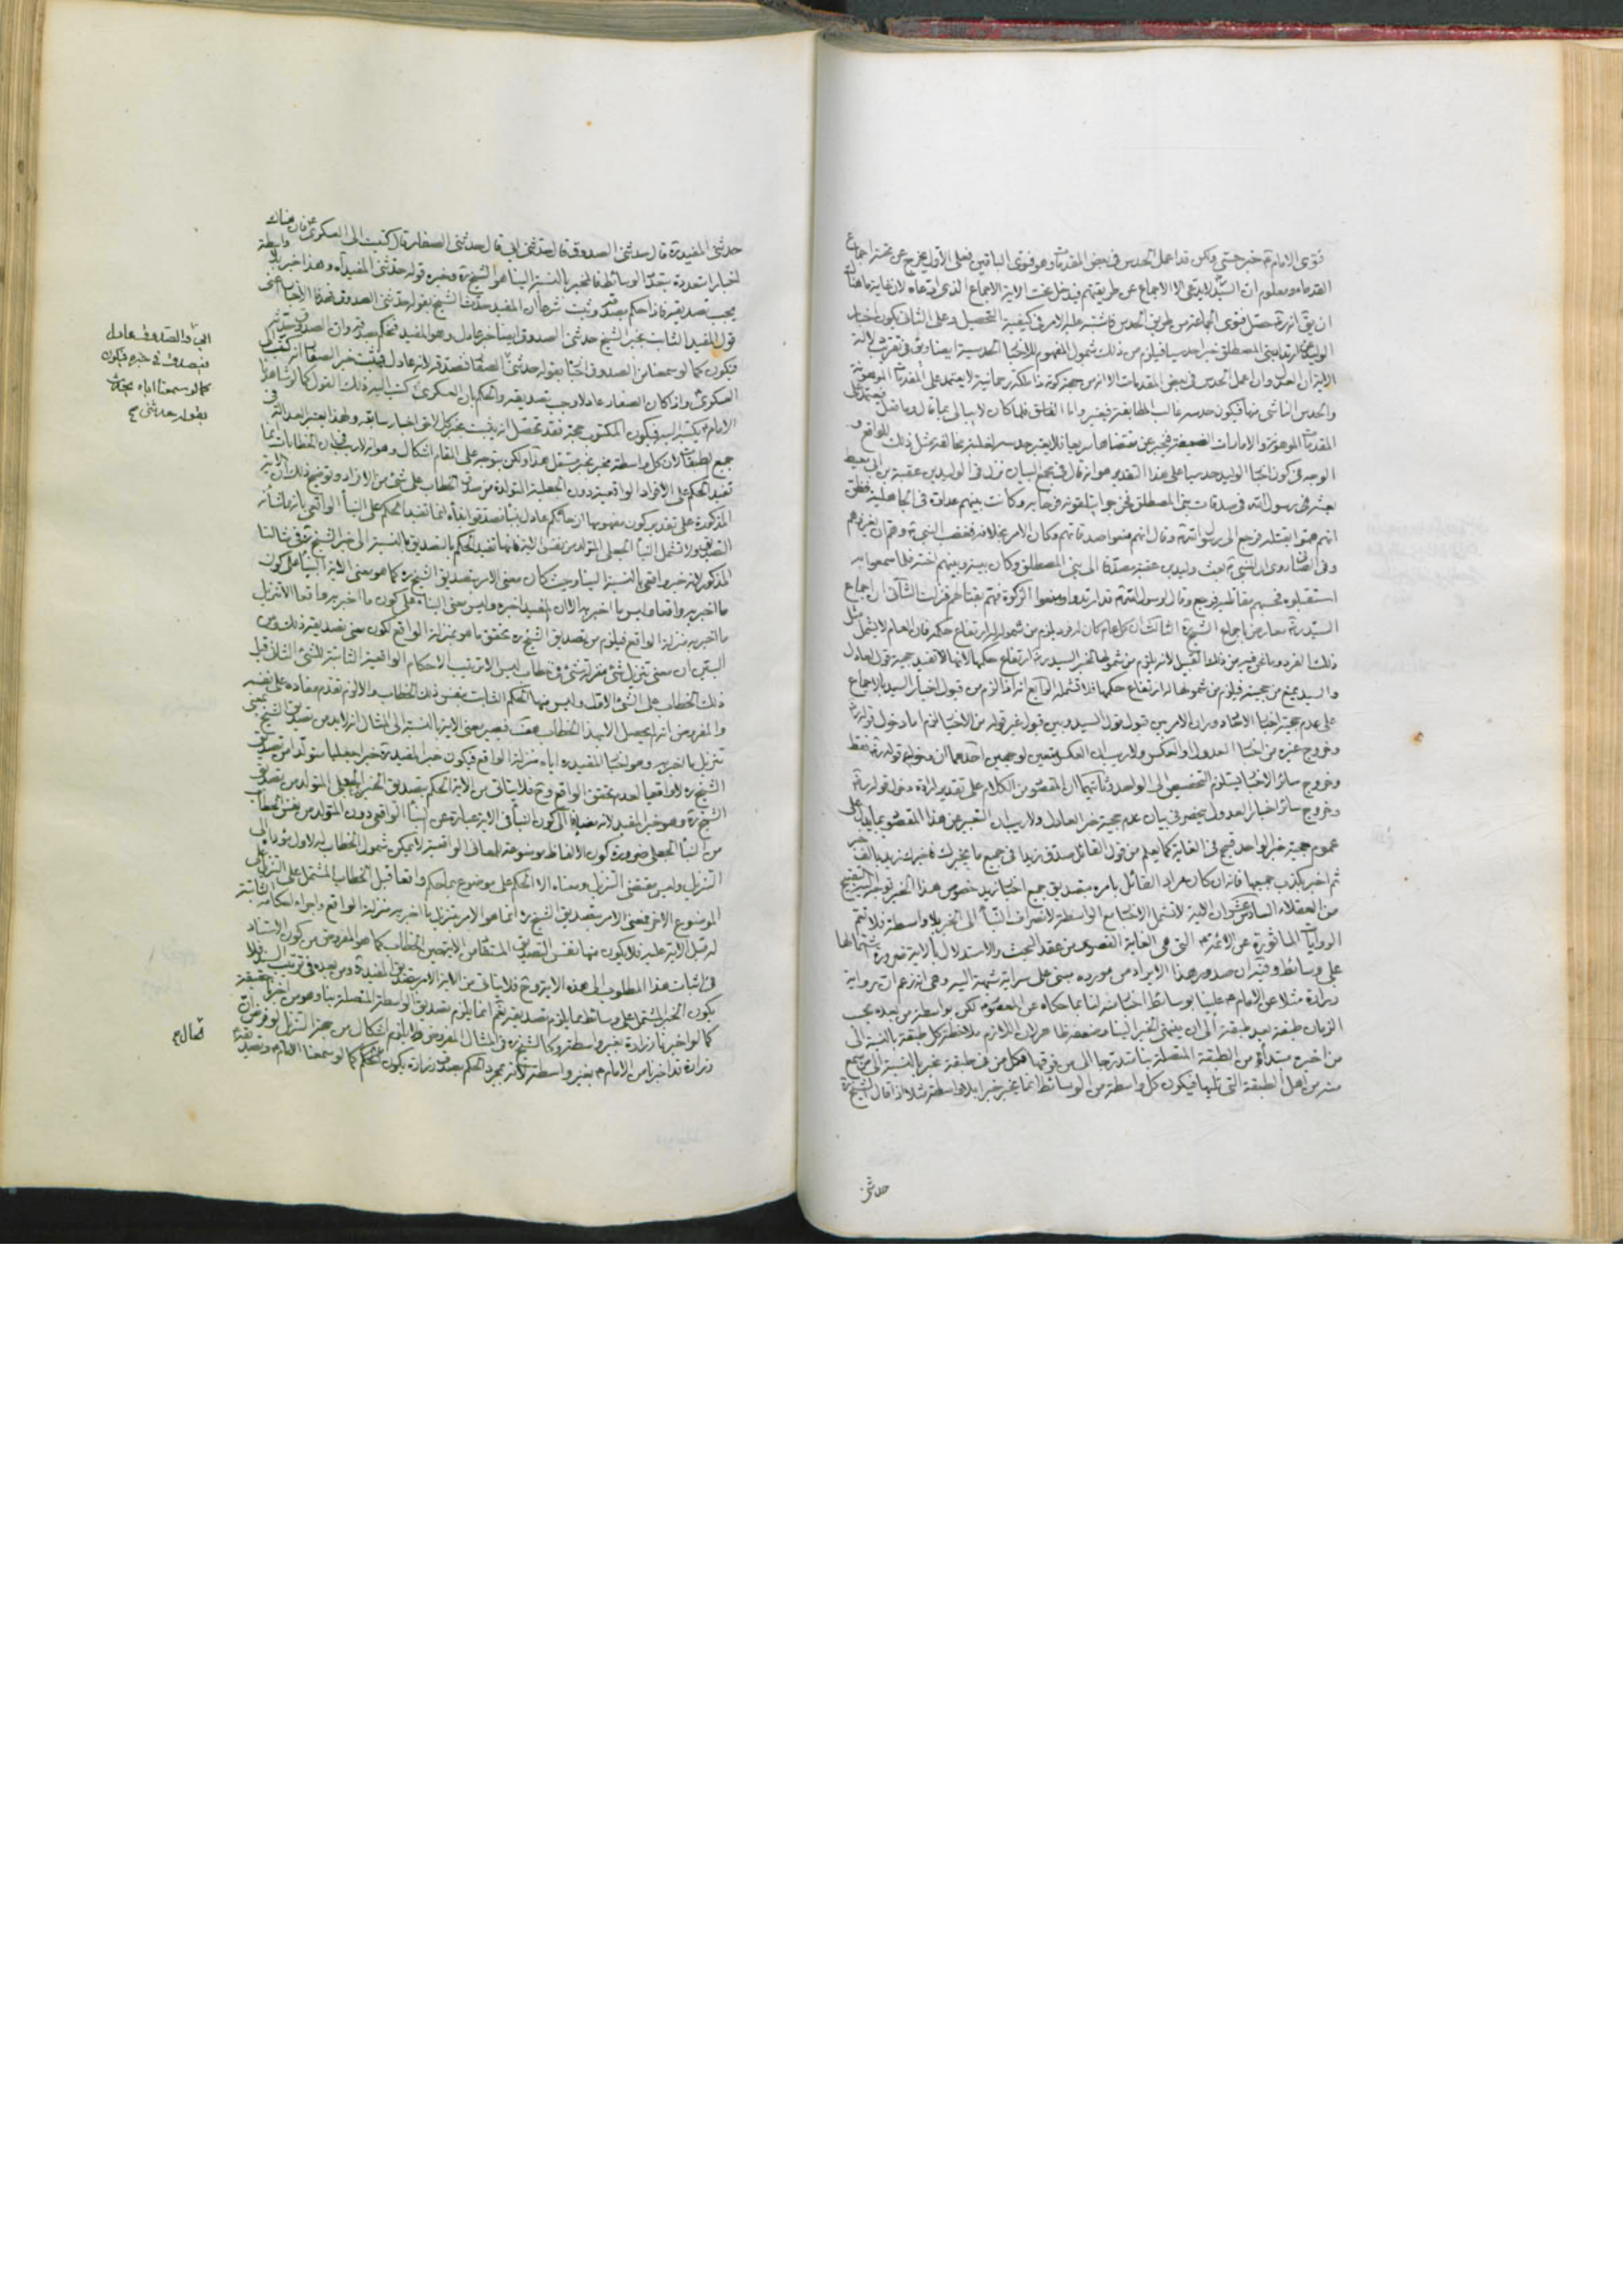 فتوى الامام ع خبر حسى ولكن قد اعمل الحدس فى بعض المقدمات وهو فتوى الباقين فعلى الأول يخرج عن مخبر اجماع
القدماء ومعلوم ان السيد لا يدعى الا الاجماع عن طريقتهم فيدخل تحت الاية الاجماع الذى ادعاه لان غاية ما هناك
ان يق انه ره حصل فتوى الجماعة من طريق الحدس فاشتبه عليه الامر فى كيفية التحصيل وعلى الثانى يكون اخبار
الوليد بارتداد بنى المصطلق خبرا حدسيا فيلزم من ذلك شمول المفهوم للاخبار الحدسية ايضا
الاية ان العدل وان اعمل الحدس فى بعض المقدمات الا انه من جهة كونه ذا ملكة رحمانية لا يعتمد على المقدمات الموهونة
والحدس الناشى منها فيكون حدسه غالب المطابقة فيعتبر واما الفاسق فلما كان لا يبالى بما قال
المقدمات الموهونة والامارات الضعيفة فيخبر عن مقتضاها سريعا فلا يعتبر حدسه لغلبة مخالفة مثل ذلك للواقع و
الوجه فى كون اخبار الوليد حدسيا على هذا التقدير هو انه قال فى مجمع البيان نزل فى الوليد بن عقبة بن ابى معيط
بعثه رسول الله فى صدقات بنى المصطلق فخرجوا يتلقونه فرحا به وكانت بينهم عداوة فى الجاهلية فظن
انهم هموا بقتله فرجع الى رسول الله ص وقال انهم منعوا صدقاتهم وكان الامر بخلافه فغضب النبى ص وهم ان يغزوهم
وفى الصافى روى ان النبى ص بعث وليد بن عقبة مصدقا الى بنى المصطلق وكان بينه وبينهم احنة فلما سمعوا به
استقبلوه فحسبهم مقاتليه فرجع وقال لرسول الله ص قد ارتدوا ومنعوا الزكوة فهم بقتالهم فنزلت الثانى ان اجماع
السيد ره معارض باجماع الشيخ ره الثالث ان كل عام كان له فرد يلزم من شموله له ارتفاع حكمه فان العام لا يشمل مثل
ذلك الفرد وما نحن فيه من ذلك القبيل لانه يلزم من شمولها لخبر السيد ره ارتفاع حكمها لانها لا تفيد حجية قول العادل
والسيد يمنع من حجيته فيلزم من شمولها له ارتفاع حكمها فلا تشمله الرابع انه اذا لزم من قبول اخبار السيد بالاجماع
على عدم حجية اخبار الآحاد دوران الامر بين قبول قول السيد وبين قبول غير قوله من الاخبار لزم اما دخول قوله ره
وخروج غيره من اخبار العدول او العكس ولا ريب ان العكس متعين لوجهين احدهما ان دخول قوله ره فقط
وخروج سائر الاخبار يستلزم التخصيص الى الواحد وثانيهما ان المقصود من الكلام على تقدير ارادة دخول قوله ره
وخروج سائر اخبار العدول ينحصر فى بيان عدم حجية خبر العادل ولا ريب ان التعبير عن هذا المقصود بما يدل على
عموم حجية خبر الواحد قبيح فى الغاية كما يعلم من قول القائل صدق زيدا فى جميع ما يخبرك فاخبرك زيد بالف خبر
ثم اخبر بكذب جميعها فانه ان كان مراد القائل بامره بتصديق جميع اخبار زيد خصوص هذا الخبر توجه اليه التقبيح
من العقلاء السادس عشر ان الاية لا تشمل الاخبار مع الواسطة لانصراف النبأ الى الخبر بلا واسطة فلا تعم
الروايات المأثورة عن الائمة ع التى هى الغاية القصوى من عقد البحث والاستدلال بالاية ضرورة اشتمالها
على وسائط وفيه ان صدور هذا الايراد من مورده مبنى على سراية شبهة اليه وهى انه زعم ان رواية
زرارة مثلا عن الامام ع علينا بوسائط اخبار لنا بما حكاه عن المعصوم لكن بواسطة من بعده بحسب
الزمان طبقة بعد طبقة الى ان ينتهى الخبر الينا وضعفه ظاهر لان اللازم ملاحظة كل طبقة بالنسبة الى
من اخبره مبتدأة من الطبقة المتصلة بنا متدرجا الى من فوقها فكل من فى طبقة مخبر بالنسبة الى من سمع
منه من اهل الطبقة التى تليها فيكون كل واسطة من الوسائط انما يخبر خبرا بلا واسطة مثلا اذا قال الشيخ ره
حدثنى
حدثنى المفيد ره قال حدثنى الصدوق قال حدثنى ابى قال حدثنى الصفار قال كتبت الى العسكرى ع فان هناك
اخبارا متعددة بتعدد الوسائط فالمخبر بالنسبة الينا هو الشيخ ره وخبره قوله حدثنى المفيد اه وهذا خبر بلا واسطة
يجب تصديقه فاذا حكم بصدقه وثبت شرعا ان المفيد حدث الشيخ بقوله حدثنى الصدوق فهذا الاخبار اعنى
قول المفيد الثابت بخبر الشيخ حدثنى الصدوق ايضا خبر عادل وهو المفيد فنحكم بصدقه وان الصدوق حدثه
فيكون كما لو سمعنا من الصدوق اخباره بقوله حدثنى الصفار فنصدقه لانه عادل فيثبت خبر الصفار انه كتب اليه
العسكرى واذا كان الصفار عادلا وجب تصديقه والحكم بان العسكرى ع كتب اليه ذلك القول كما لو شاهدنا
الامام ع يكتبه اليه فيكون المكتوب حجة فقد تحصل انه يثبت بخبر كل لاحق اخبار سابقه ولهذا يعتبر العدالة فى
جميع الطبقات لان كل واسطة مخبر بخبر مستقل هذا ولكن يتوجه على المقام اشكال وهو انه لا ريب فى ان الخطابات انما
تفيد الحكم على الافراد الواقعية دون الجعلية المتولدة من سريان الخطاب على شئ من الافراد وتوضيح ذلك ان الاية
المذكورة على تقدير كون مفهومها ان جائكم عادل بنبأ صدقوا نبأه انما تفيد الحكم على النبأ الواقعى بانه من شأنه
التصديق ولا تشمل النبأ الجعلى المتولد من نفس الاية فانها تفيد الحكم بالتصديق بالنسبة الى خبر الشيخ ره فى مثالنا
المذكور لانه خبر واقعى بالنسبة الينا وحيث كان معنى الامر بتصديق الشيخ ره كما هو معنى الاية البناء على كون
ما اخبر به واقعا وليس ما اخبر به الا ان المفيد اخبره وليس معنى البناء على كون ما اخبر به واقعا الا تنزيل
ما اخبر به منزلة الواقع فيلزم من تصديق الشيخ ره تحقق ما هو بمنزلة الواقع لكون معنى تصديقه ذلك ومن
البين ان معنى تنزيل شئ منزلة شئ فى خطاب ليس الا ترتيب الاحكام الواقعية الثابتة للشئ الثانى قبل
ذلك الخطاب على الشئ الاول وليس منها الحكم الثابت بنفس ذلك الخطاب والا لزم تقدم مفاده على نفسه
والمفروض انه لم يحصل الا بهذا الخطاب فيصير معنى الاية بالنسبة الى المثال انه لا بد من تصديق الشيخ بمعنى
تنزيل ما اخبر به وهو اخبار المفيد ره اياه منزلة الواقع فيكون خبر المفيد ره خبرا جعليا متولدا من تصديق
الشيخ ره لا واقعيا لعدم تحقق الواقع وح فلا يتأتى من الاية الحكم بتصديق الخبر الجعلى المتولد من تصديق
الشيخ ره وهو خبر المفيد لانه مضافا الى كون النبأ فى الاية عبارة عن النبأ الواقعى دون المتولد من نفس الخطاب
من النبأ الجعلى ضرورة كون الالفاظ موضوعة للمعانى الواقعية لا يمكن شمول الخطاب له لاول مؤداه الى
التنزيل وليس مقتضى التنزيل ومعناه الا الحكم على موضوع بما حكم واقعا قبل الخطاب المشتمل على التنزيل على
الموضوع الاخر فمعنى الامر بتصديق الشيخ ره انما هو الامر بتنزيل ما اخبر به منزلة الواقع واجراء احكامه الثابتة
له قبل الاية عليه فلا يكون منها نفس التصديق المستفاد من الاية حين الخطاب كما هو المفروض من كون الاستناد
فى اثبات هذا المطلوب الى هذه الاية وح فلا يتأتى من الاية الامر بتصديق المفيد ره ومن بعده فى ترتيب السند فلا
يكون الخبر المشتمل على وسائط مما يلزم تصديقه نعم انما يلزم تصديق الواسطة المتصلة بنا وهو من اخبرنا حقيقة
كما لو اخبرنا زرارة بغير واسطة وكالشيخ ره فى المثال المفروض ولا يلزم اشكال من جهة التنزيل لو فرض ان
زرارة قد اخبرنا من الامام ع بغير واسطة لانه بمجرد الحكم بصدق زرارة يكون الحكم كما لو سمعنا الامام ع وتصديقه
ابى والصدوق عادل
فيصدق فى خبره فيكون
كما لو سمعنا اباه يحدث
بقوله حدثنى صح